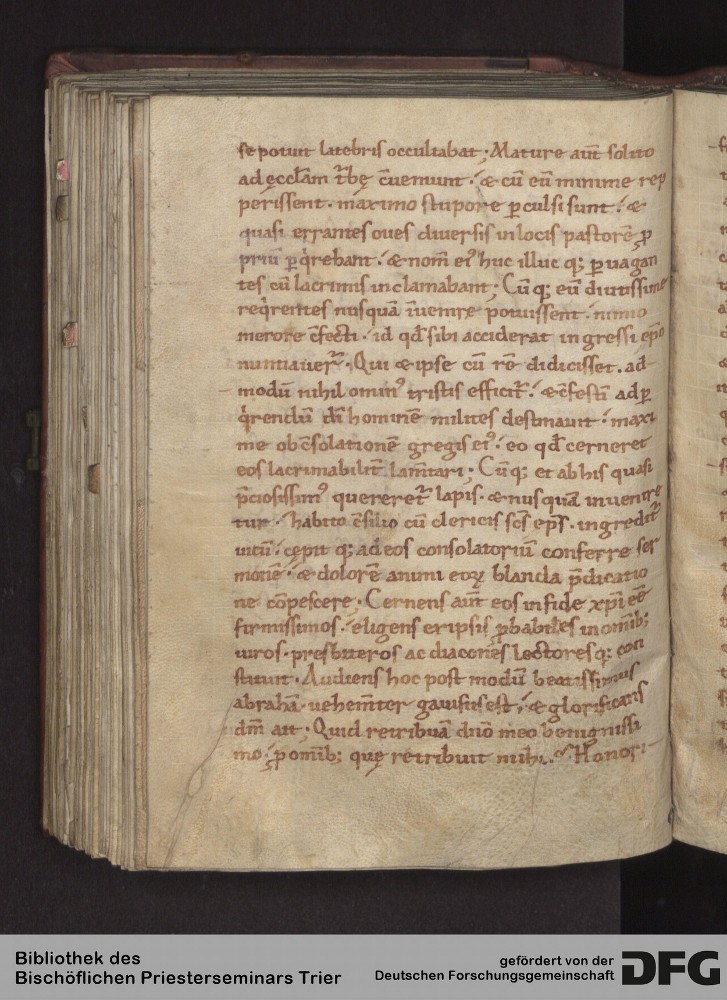 se potuit latebris occultabat; Mature aut̄ solito
ad ęccłam t̄bę c̄ueniunt. & cū eū minime rep
perissent. maximo stupore ꝑculsi sunt. &
quasi errantes oues diuersis in locis pastorē ꝓ
priū ꝑq̇rebant. & nom̄ ei᾿ huc illuc q; ꝑuagan
tes cū lacrimis inclamabant; Cū q; eū diutissime
req̇rentes nusquā inuenire potuissent. nimio
merore c̄fecti. id qđ sibi acciderat ingressi ep̄o
nuntiauer̄. Qui & ipse cū rē didicisset. ad
modū nihil omin᾿ tristis efficit̄. & c̄festī ad ꝑ
q̇rendū dī hominē milites destinauit. maxi
me ob c̄solationē gregis ei᾿. eo qđ cerneret
eos lacrimabilit̄ lam̄tari; Cū q; et ab his quasi
p̄ciosissim᾿ quereret̄ lapis. & nusquā inuenire
tur. habito c̄silio cū clericis sc̄s ep̄s. ingredit̄
uicū. cępit q; ad eos consolatoriū conferre ser
monē. & dolorē animi eoꝝ blanda p̄dicatio
ne cōpescere. Cernens aut̄ eos in fide xp̄i eē
firmissimos. eligens ex ipsis ꝓbabiles in omīb;
uiros. presbiteros ac diacones lectoresq; con
stituit. Audiens hoc post modū beatissimus
abrahā. uehem̄ter gauisus est. & glorificans
dm̄ ait; Quid retribuā dn̄o meo benignissi
mo. ꝓ omīb; quę retribuit mihi.. Honori
Bibliothek des
Bischöflichen Priesterseminars Trier
gefördert von der
Deutschen Forschungsgemeinschaft
DFG